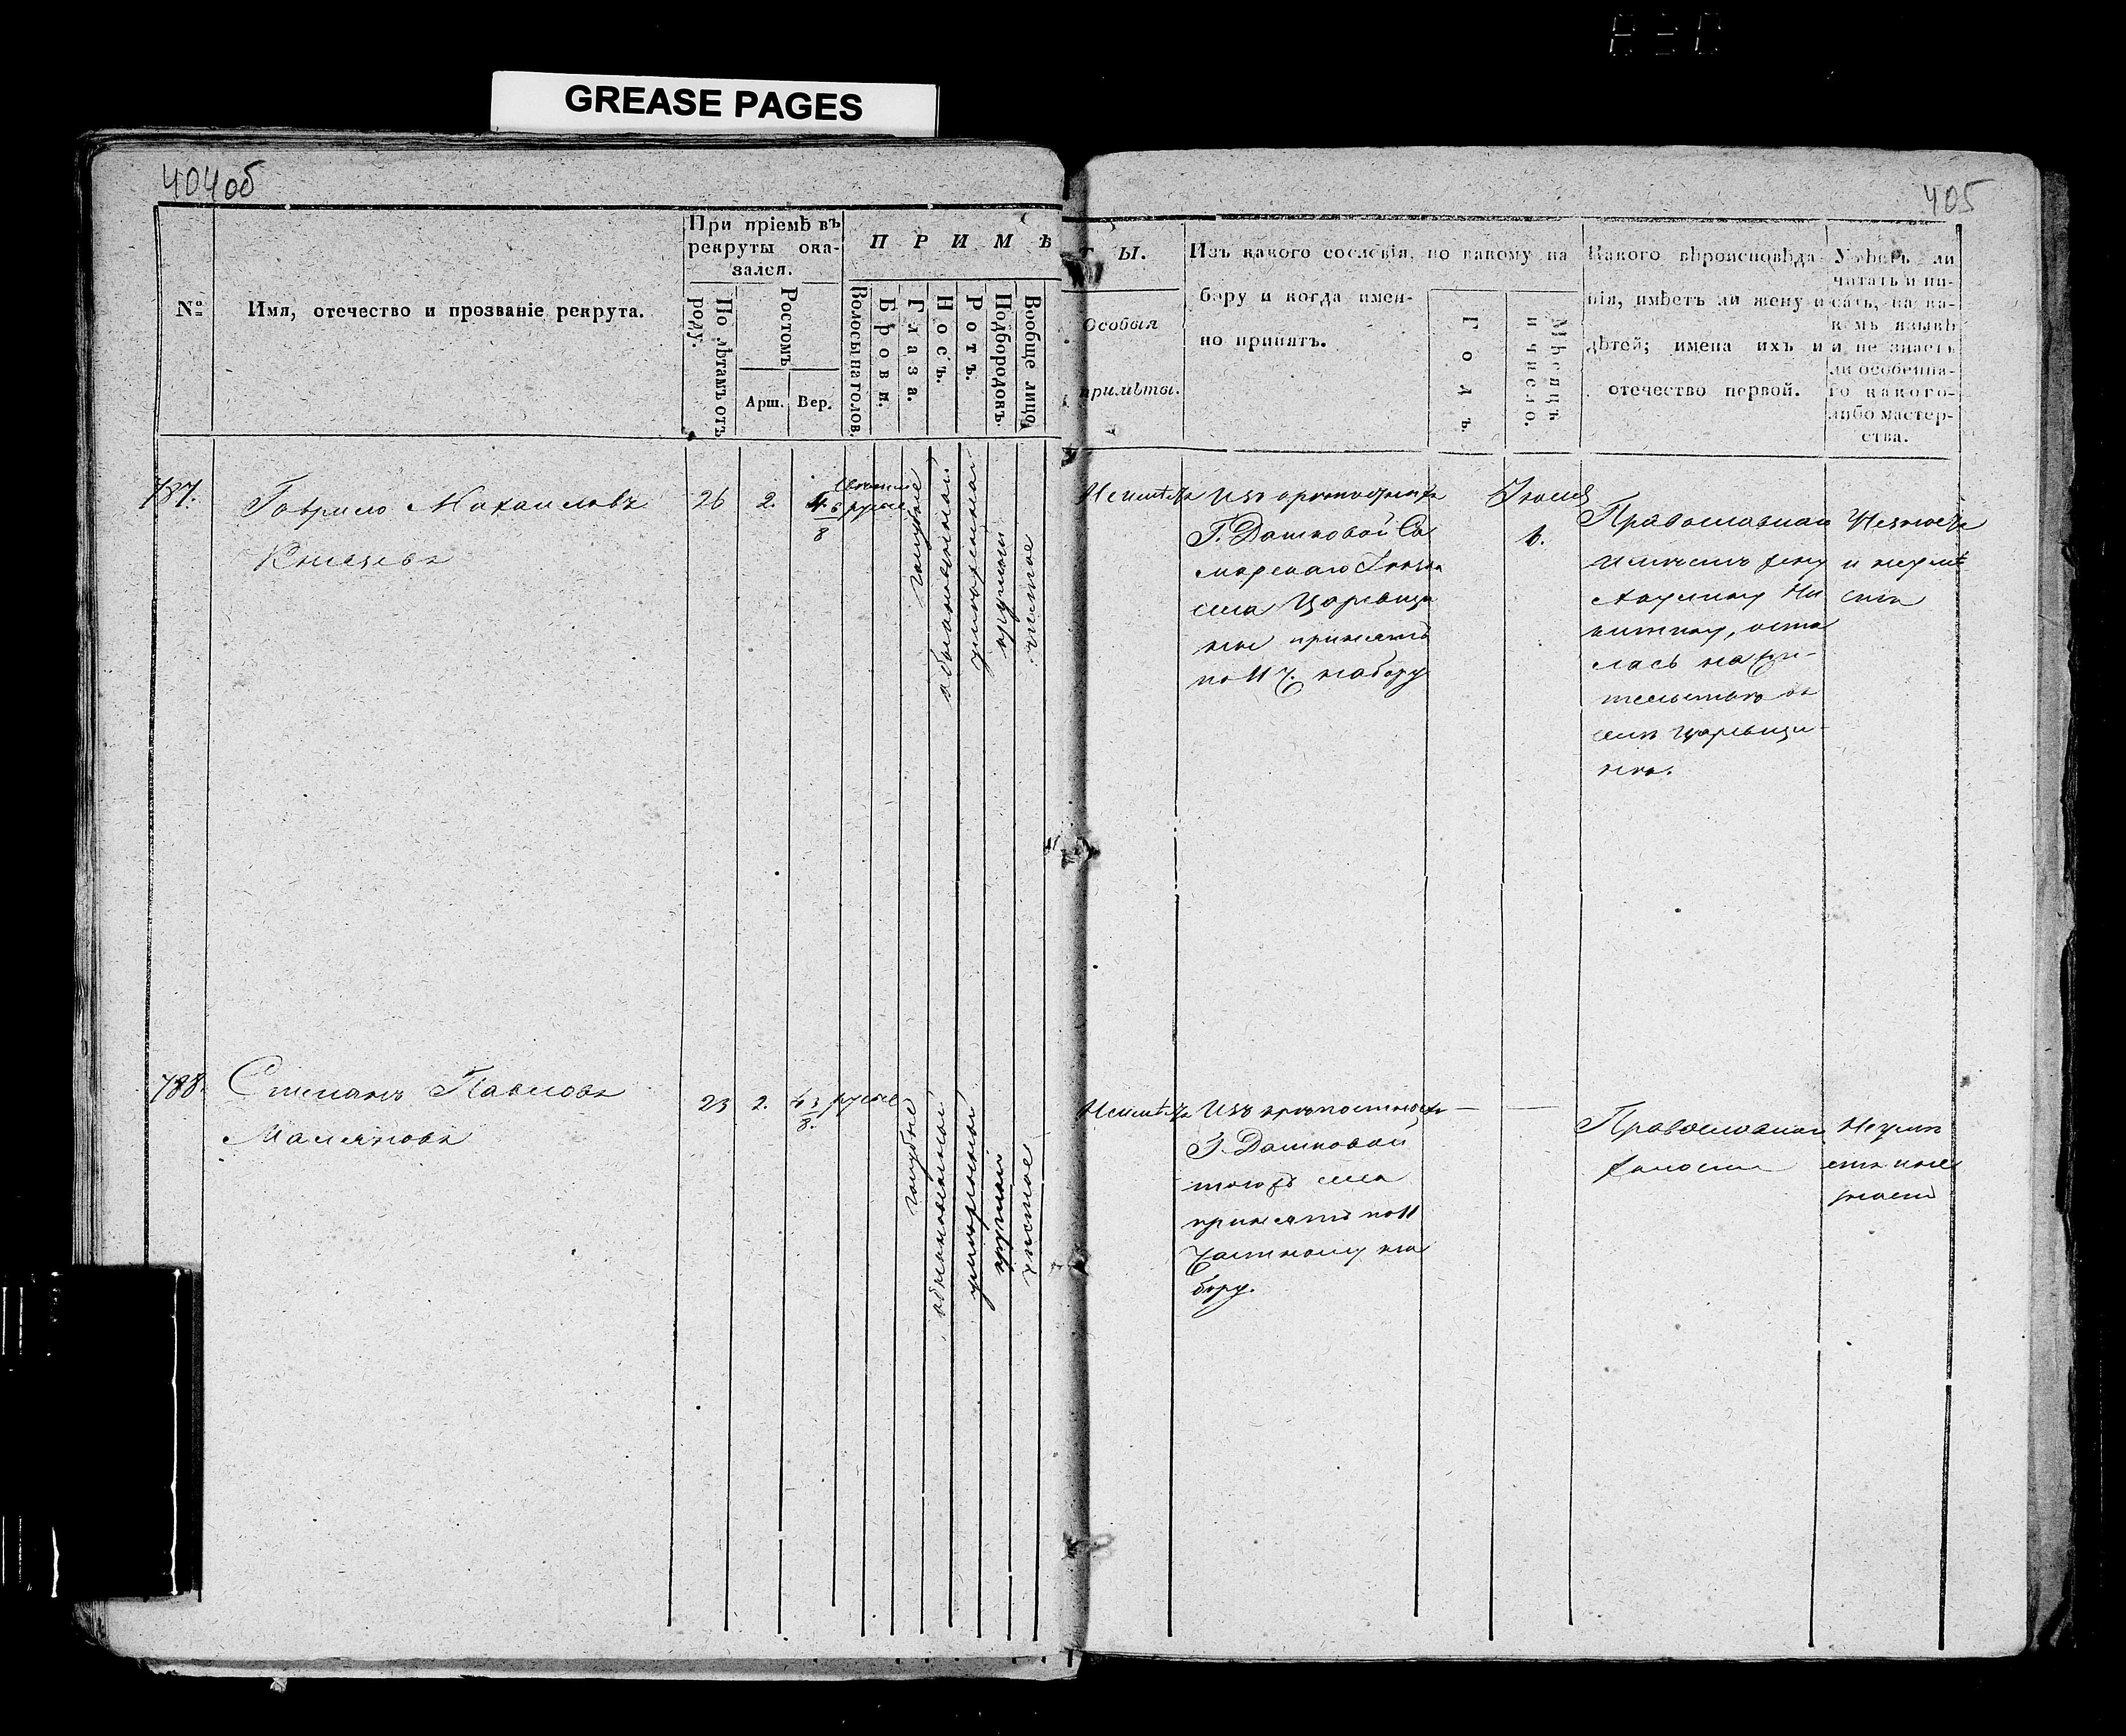 GREASE PAGES
404об
405
№
Имя, отечество и прозваніе рекрута.
При пріемѣ въ
рекруты ока-
зался.
По лѣтамъ отъ
роду.
Ростомъ
Арш.
Вер.
П Р И М Ѣ
Волосы на голов.
Брови.
Глаза.
Носъ.
Ротъ.
Подбородокъ.
Вообще лицо.
Т Ы.
Особыя
примѣты.
Изъ какого сословія, по какому на
бору и когда имен-
но принятъ.
Годъ
Мѣсяцъ
и число.
Какого вѣроисповѣда
нія, имѣетъ ли жену и
дѣтей; имена ихъ и
отечество первой.
Умѣетъ ли
читать и пи-
сать, на ка-
комъ языкѣ
и не знаетъ
ли особенна-
го какого-
либо мастер-
ства.
787.
Гаврило Михаиловъ
Князевъ
26
2.
4
8
русые
голубые
обыкновенный
умѣренный
круглый
чистое
Неимѣетъ
Изъ крѣпостныхъ
Г. Дашковой Са
марскаго
села Царевщи
ны принятъ
по 11 ч. набору
Іюня
6.
Православнаго
имѣетъ жену
Ни
китину, оста
лась на жи-
тельствѣ въ
селѣ Царевщи-
нѣ.
и неумѣ
етъ
788.
Степанъ Павловъ
23
2.
4 3
8.
русые
голубые
обыкновенный
умѣренный
круглый
чистое
Неимѣетъ
Изъ крѣпостныхъ
Г. Дашковой
тогожъ села
принятъ по 11
частному на
бору.
Православнаго
холостъ
Неумѣ
етъ и не
знаетъ